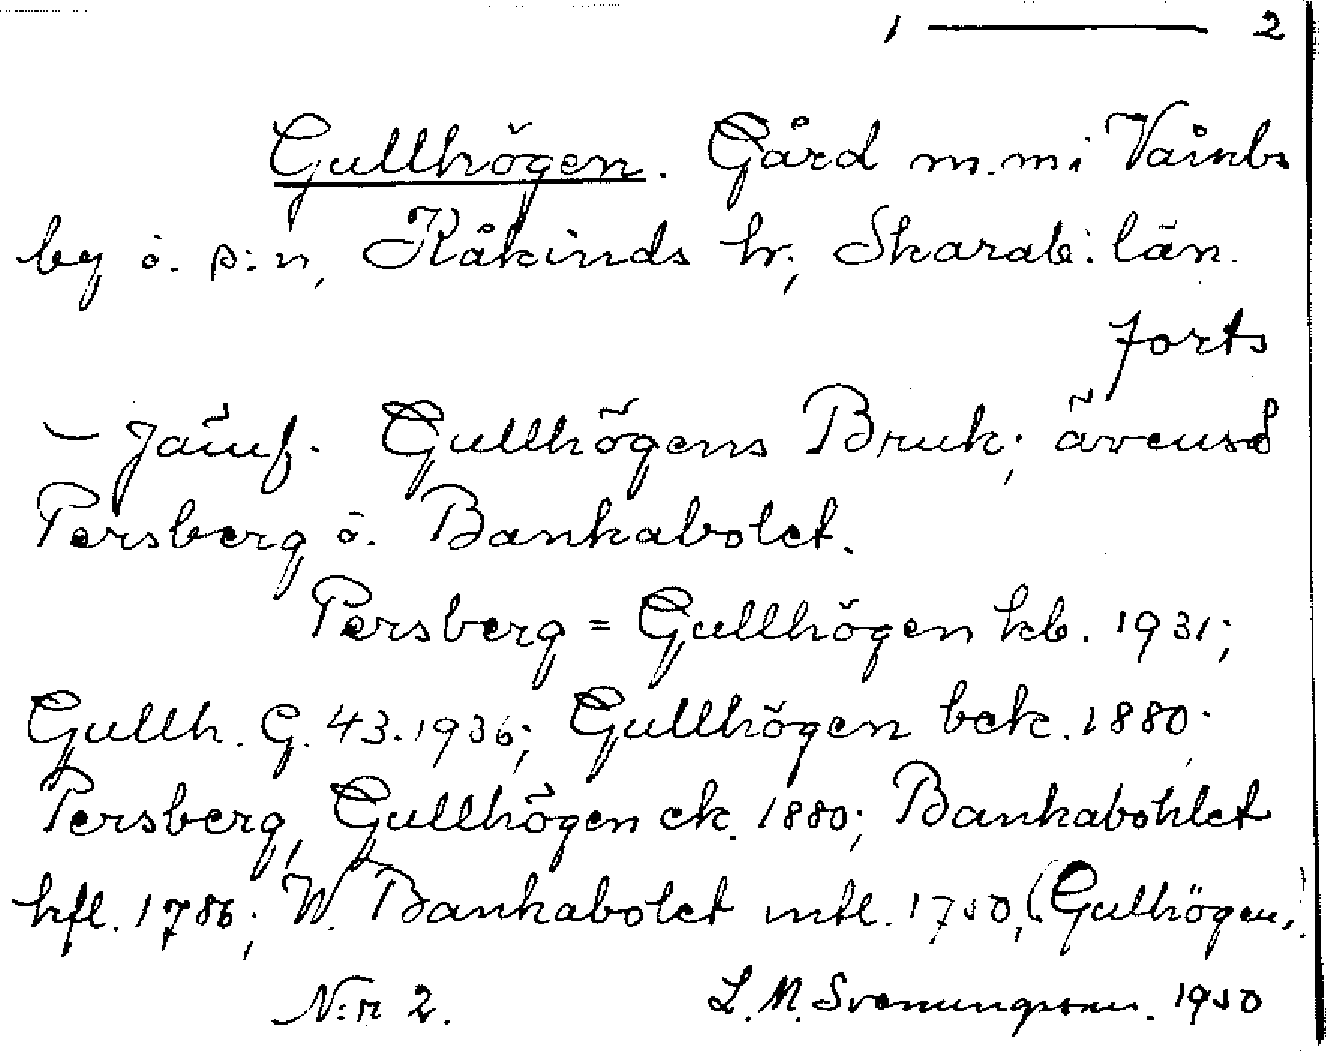 1 ——— 2
Gullhögen. Gård m.m i Våmbs
by o. s:n, Kåkinds hr., Skarab: län.
forts
– Jämf. Gullhögens Bruk; ävenså
Persberg o. Bankabolet.
Persberg = Gullhögen kb. 1931;
Gullh. G. 43.1936; Gullhögen bck. 1880;
Persberg, Gullhögen ck. 1880; Bankabohlet
kfl. 1786; W. Bankabolet mtl. 1750, (Gulhögen,)
N:r 2. L. M. Svenungsson. 1950